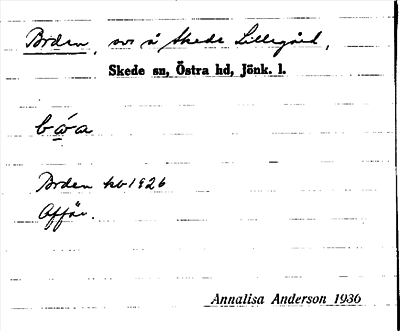 Borden, sv å Skede Lillegård,
Skede sn, Östra hd, Jönk. l.
Borden kb 1926
Affär.
Annalisa Anderson 1936